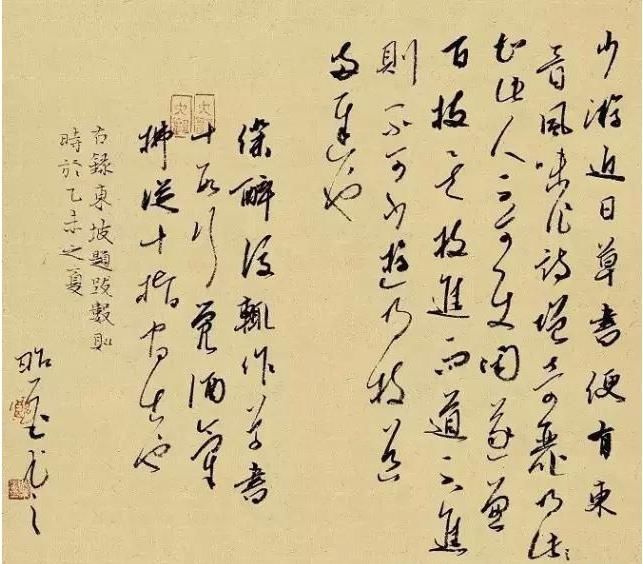 少游近日草書便有東
晉風味作詩增奇麗乃
知此人不可使閑遂兼
百技矣技進而道不進
則不可少游乃技道
兩進也
僕醉後輒作草書
十數行覺酒氣
拂從十指間出也
右錄東坡題跋數則
時於乙未之夏